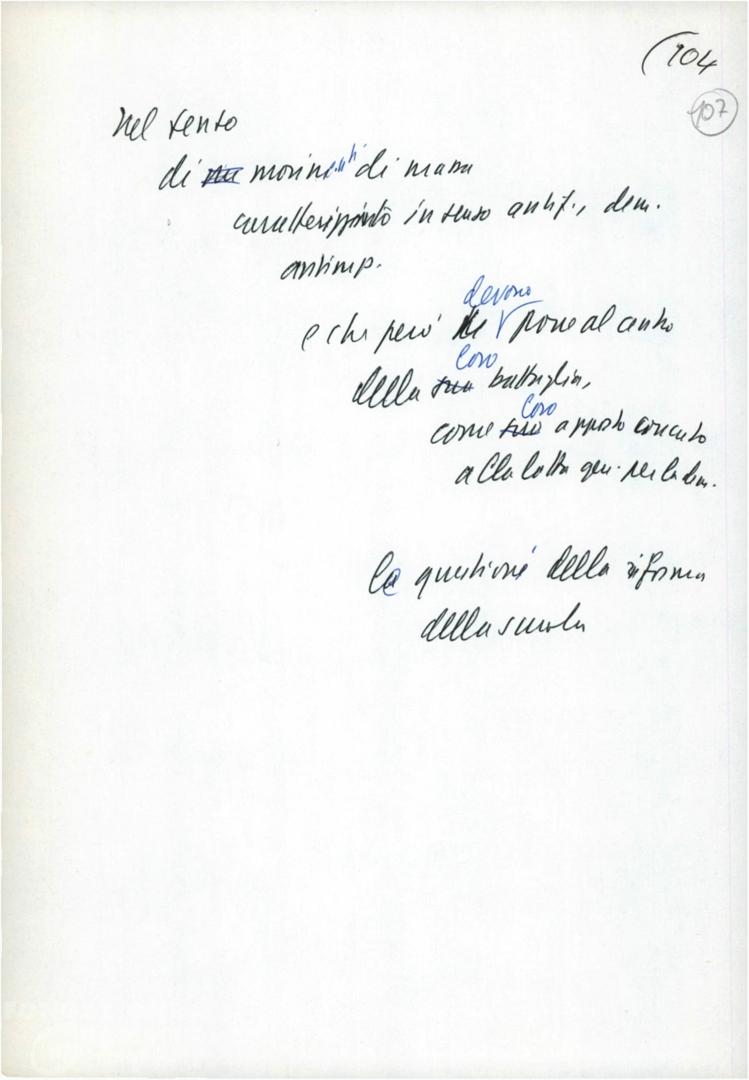 (104
107
Nel senso
di un movimenti di massa
caratterizzato in senso antif., dem.
antimp.
devono
e che però porre al centro
loro
della sua battaglia,
loro
come suo apporto concreto
alla lotta gen. per la dem.
la questione della riforma
della scuola